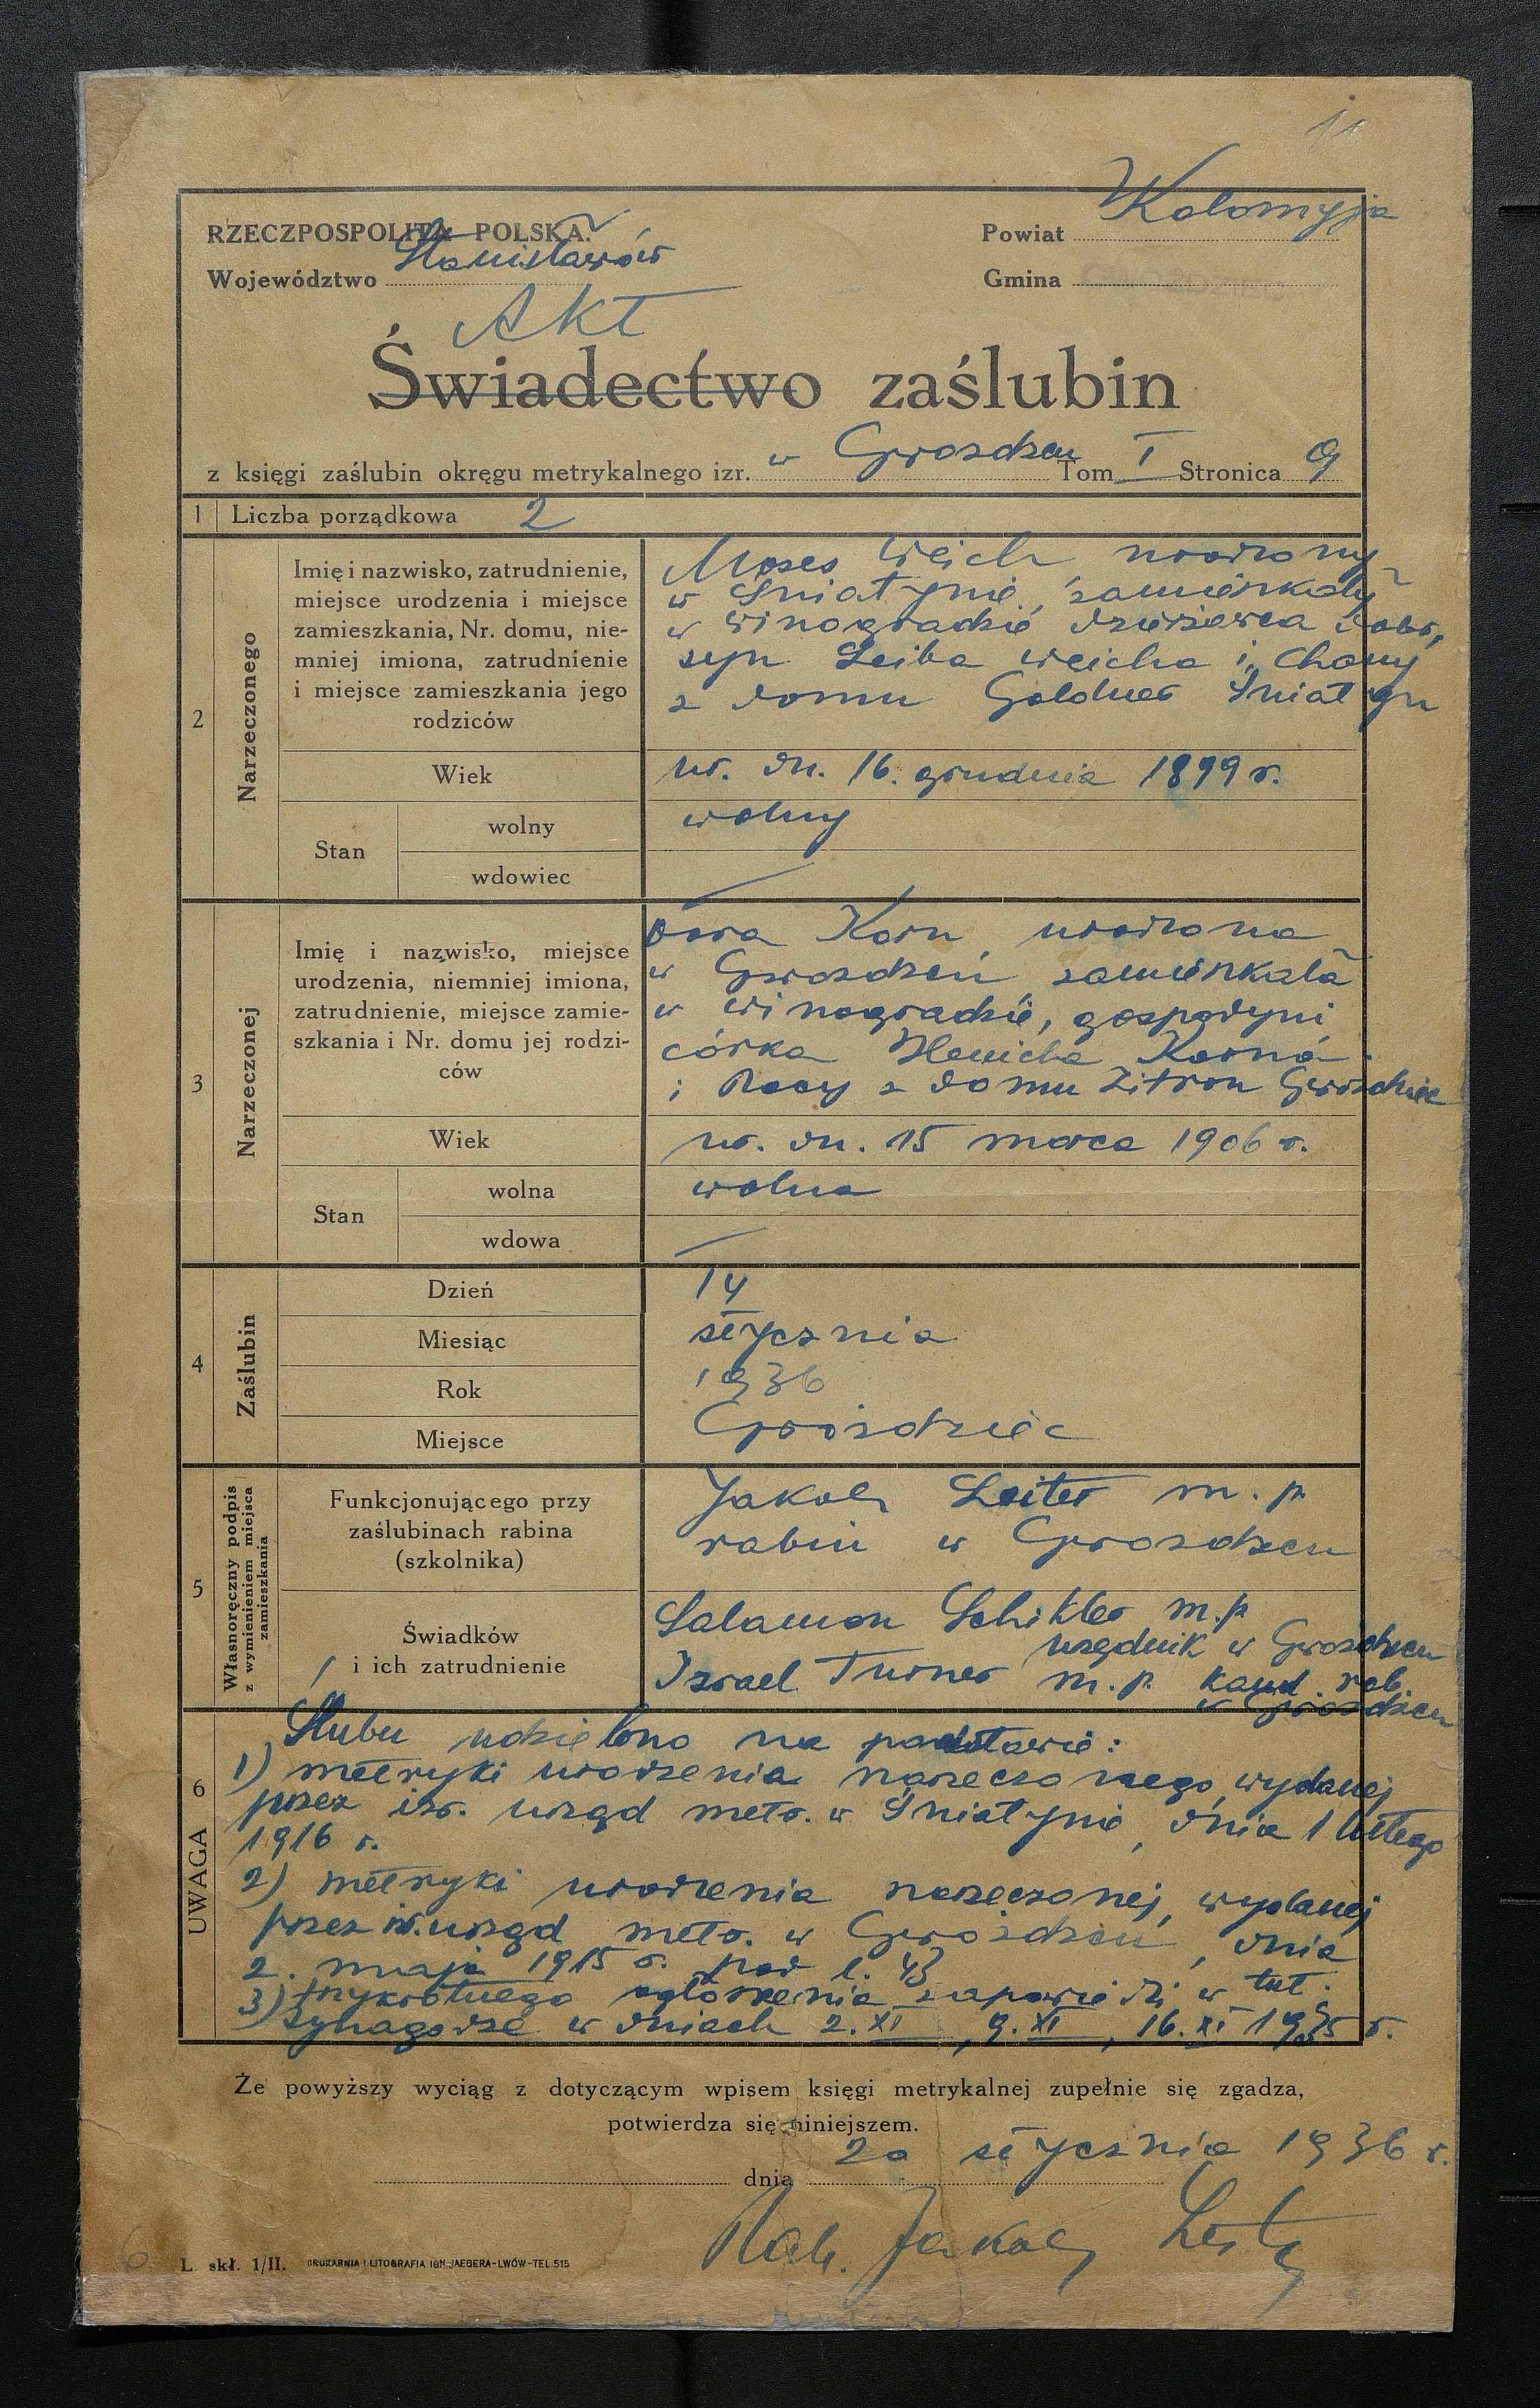 RZECZPOSPOLITA POLSKA.
Powiat Kołomyja
Województwo Stanisławów
Gmina
Akt
Świadectwo zaślubin
z księgi zaślubin okręgu metrykalnego izr. w Gwoźdzcu Tom I Stronica 9
1 Liczba porządkowa 2
2
Narzeczonego
Imię i nazwisko, zatrudnienie,
miejsce urodzenia i miejsce
zamieszkania, Nr. domu, nie-
mniej imiona, zatrudnienie
i miejsce zamieszkania jego
rodziców
Moses Weich urodzony
w Śniatynie, zamieszkały
w Winogradzie dzierżawca dóbr,
syn Leiba Weicha i Chany
z domu Goldner Śniatyn
Wiek
ur. dn. 16. grudnia 1899 r.
Stan
wolny
wolny
wdowiec
3
Narzeczonej
Imię i nazwisko, miejsce
urodzenia, niemniej imiona,
zatrudnienie, miejsce zamie-
szkania i Nr. domu jej rodzi-
ców
Dora Korn, urodzona
w Gwoźdzcu, zamieszkała
w Winogradzie, gospodyni
córka Henicha Korna
i Racy z domu Zitron Gwoździec
Wiek
ur. dn. 15 marca 1906 r.
Stan
wolna
wolna
wdowa
4
Zaślubin
Dzień
14
Miesiąc
stycznia
Rok
1936
Miejsce
Gwoździec
5
Własnoręczny podpis
z wymienieniem miejsca
zamieszkania
Funkcjonującego przy
zaślubinach rabina
(szkolnika)
Jakob Leiter m.p
rabin w Gwoźdzcu
Świadków
i ich zatrudnienie
Salamon Schikler m.p
urzędnik w Gwoźdzcu
Izrael Turner m.p. kand. rab.
w Gwoźdzcu
6
UWAGA
Ślubu udzielono na podstawie:
1) metryki urodzenia narzeczonego, wydanej
przez izr. urząd metr. w Śniatynie, dnia 1 lutego
1916 r.
2) metryki urodzenia narzeczonej, wydanej
przez izr. urząd metr. w Gwoźdzcu, dnia
2. maja 1915 r. pod l. 43
3) trzykrotnego ogłoszenia zapowiedzi w tut.
synagodze w dniach 2.XI, 9.XI, 16.XI 1935 r.
Że powyższy wyciąg z dotyczącym wpisem księgi metrykalnej zupełnie się zgadza,
potwierdza się niniejszem.
dnia 20 stycznia 1936 r.
Rab. Jakob Leiter
L. skł. 1/II. DRUKARNIA I LITOGRAFIA IGN. JAEGERA-LWÓW-TEL. 515